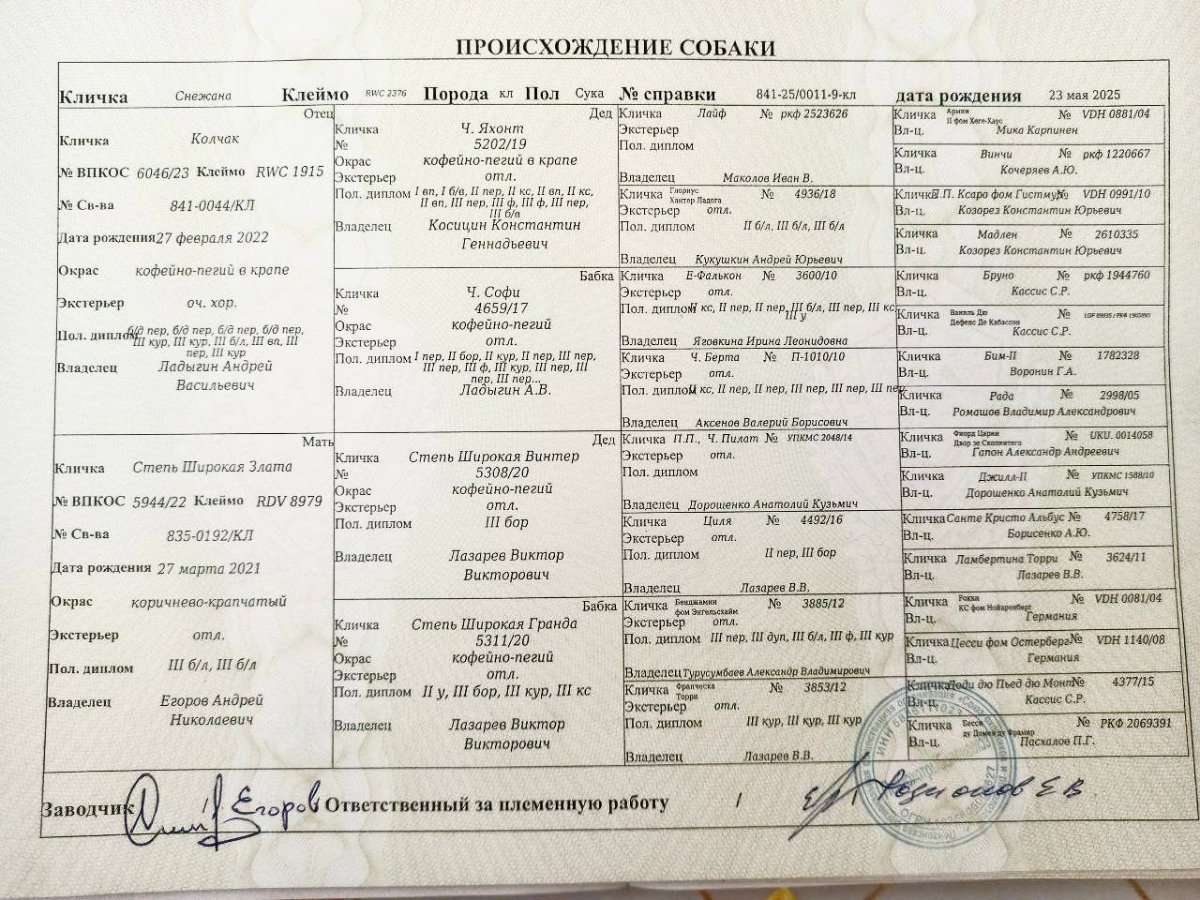 ПРОИСХОЖДЕНИЕ СОБАКИ
Кличка Снежана Клеймо RWC 2376 Порода кл Пол Сука № справки 841-25/0011-9-кл дата рождения 23 мая 2025
Отец
Кличка Колчак
№ ВПКОС 6046/23 Клеймо RWC 1915
№ Св-ва 841-0044/КЛ
Дата рождения 27 февраля 2022
Окрас кофейно-пегий в крапе
Экстерьер оч. хор.
Пол. диплом б/д пер, б/д пер, б/д пер, б/д пер,
III кур, III кур, III б/л, III вп, III
пер, III кур
Владелец Ладыгин Андрей
Васильевич
Мать
Кличка Степь Широкая Злата
№ ВПКОС 5944/22 Клеймо RDV 8979
№ Св-ва 835-0192/КЛ
Дата рождения 27 марта 2021
Окрас коричнево-крапчатый
Экстерьер отл.
Пол. диплом III б/л, III б/л
Владелец Егоров Андрей
Николаевич
Дед
Кличка Ч. Яхонт
№ 5202/19
Окрас кофейно-пегий в крапе
Экстерьер отл.
Пол. диплом I вп, I б/в, II пер, II кс, II вп, II кс,
II вп, III пер, III ф, III ф, III пер,
III б/в
Владелец Косицин Константин
Геннадьевич
Бабка
Кличка Ч. Софи
№ 4659/17
Окрас кофейно-пегий
Экстерьер отл.
Пол. диплом I пер, II бор, II кур, II пер, III пер,
III пер, III ф, III кур, III пер, III
пер, III пер...
Владелец Ладыгин А.В.
Дед
Кличка Степь Широкая Винтер
№ 5308/20
Окрас кофейно-пегий
Экстерьер отл.
Пол. диплом III бор
Владелец Лазарев Виктор
Викторович
Бабка
Кличка Степь Широкая Гранда
№ 5311/20
Окрас кофейно-пегий
Экстерьер отл.
Пол. диплом II у, III бор, III кур, III кс
Владелец Лазарев Виктор
Викторович
Кличка Лайф № ркф 2523626
Экстерьер
Пол. диплом
Владелец Маколов Иван В.
Кличка Глориус
Хантер Ладога № 4936/18
Экстерьер отл.
Пол. диплом II б/л, III б/л, III б/л
Владелец Кукушкин Андрей Юрьевич
Кличка Е-Фалькон № 3600/10
Экстерьер отл.
Пол. диплом II кс, II пер, II пер, III б/л, III пер, III кс,
III у
Владелец Яговкина Ирина Леонидовна
Кличка Ч. Берта № П-1010/10
Экстерьер отл.
Пол. диплом II кс, II пер, II пер, III пер, III пер, III пер
Владелец Аксенов Валерий Борисович
Кличка П.П., Ч. Пилат № УПКМС 2048/14
Экстерьер отл.
Пол. диплом
Владелец Дорошенко Анатолий Кузьмич
Кличка Циля № 4492/16
Экстерьер отл.
Пол. диплом II пер, III бор
Владелец Лазарев В.В.
Кличка Бенджамин
фом Энгельсхайм № 3885/12
Экстерьер отл.
Пол. диплом III пер, III дуп, III б/л, III ф, III кур
Владелец Турусумбаев Александр Владимирович
Кличка Франческа
Торри № 3853/12
Экстерьер отл.
Пол. диплом III кур, III кур, III кур
Владелец Лазарев В.В.
Кличка Армин
II фом Хеге-Хаус № VDH 0881/04
Вл-ц. Мика Карпинен
Кличка Винчи № ркф 1220667
Вл-ц. Кочеряев А.Ю.
Кличка П.П. Ксаро фом Гистмул № VDH 0991/10
Вл-ц. Козорез Константин Юрьевич
Кличка Мадлен № 2610335
Вл-ц. Козорез Константин Юрьевич
Кличка Бруно № ркф 1944760
Вл-ц. Кассис С.Р.
Кличка Ваниль Дю
Дефенс Де Кабассон №
Вл-ц. Кассис С.Р.
Кличка Бим-II № 1782328
Вл-ц. Воронин Г.А.
Кличка Рада № 2998/05
Вл-ц. Ромашов Владимир Александрович
Кличка Фиорд Царки
Двор зе Скопнитего № UKU. 0014058
Вл-ц. Гапон Александр Андреевич
Кличка Джилл-II № УПКМС 1588/10
Вл-ц. Дорошенко Анатолий Кузьмич
Кличка Санте Кристо Альбус № 4758/17
Вл-ц. Борисенко А.Ю.
Кличка Ламбертина Торри № 3624/11
Вл-ц. Лазарев В.В.
Кличка Рокки
КС фом Нойаренберг № VDH 0081/04
Вл-ц. Германия
Кличка Цесси фом Остерберг № VDH 1140/08
Вл-ц. Германия
Кличка Лоди дю Пьед дю Монт № 4377/15
Вл-ц. Кассис С.Р.
Кличка Бесси
ду Домен ду Фрамир № РКФ 2069391
Вл-ц. Пасхалов П.Г.
Заводчик / Егоров Ответственный за племенную работу / / Родионов Е В